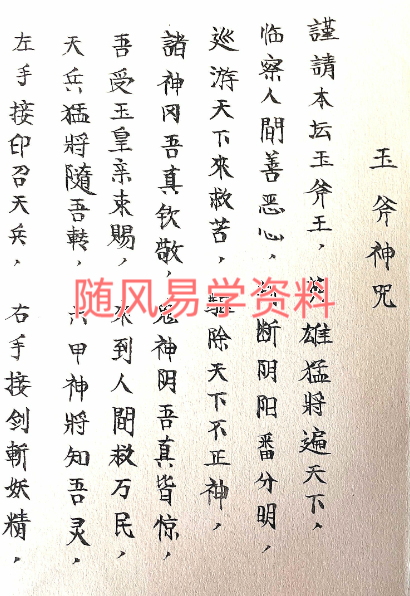 玉斧神咒
謹請本坛玉斧王，英雄猛將遍天下，
临察人間善恶心，判断阴阳番分明，
巡游天下來救苦，驅除天下不正神，
諸神冈吾真钦敬，鬼神阴吾真皆惊，
吾受玉皇亲束賜，來到人間救万民，
天兵猛將隨吾轉，六甲神將知吾灵，
左手接印召天兵，右手接剑斬妖精，
随风易学资料